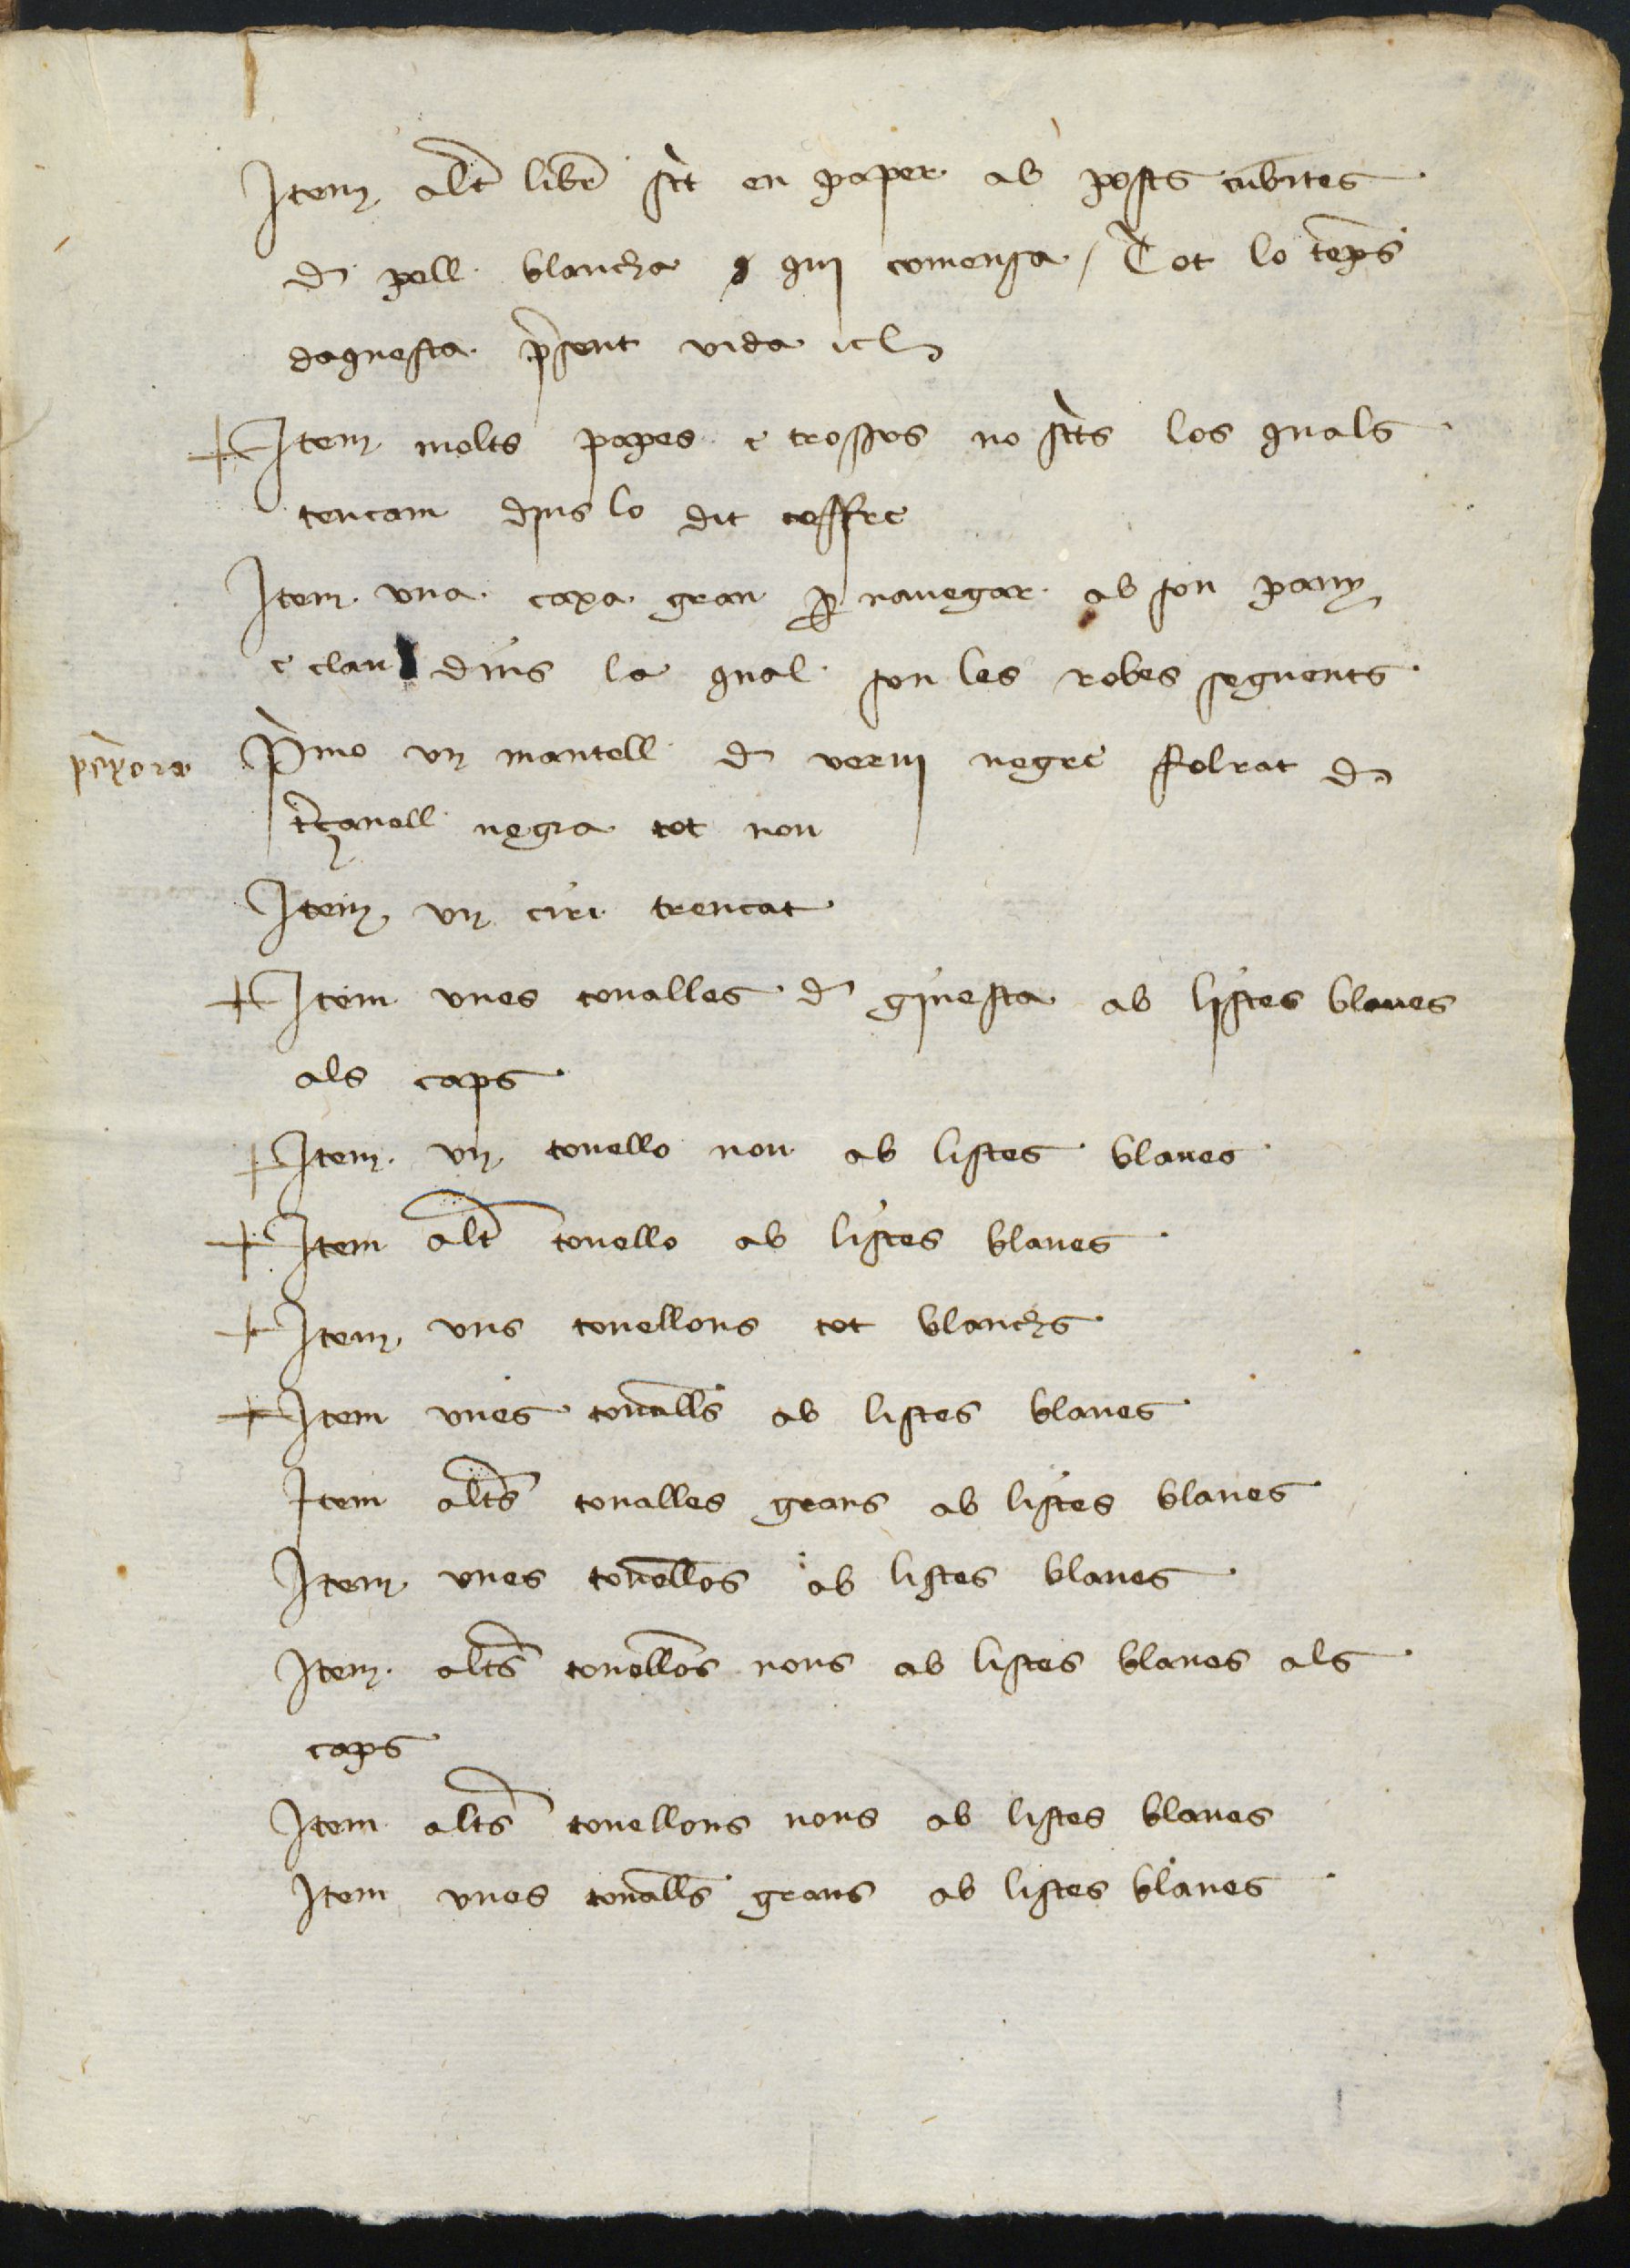 Item altr libre scrit en paper ab posts cubertes
de pell blancha qui comensa / Tot lo temps
daquesta present vida etc
+ Item molts papes e trossos no scrits los quals
tencam dins lo dit coffre
Item una caxa gran per nauegar ab son pany
e clau dins la qual son les robes seguents
Primo vn mantell de vervi negre folrat de
terçanell negra tot nou
Item vn ciri trencat
+ Item vnes toualles de ginesta ab listes blaues
als caps
+ Item vn touallo nou ab listes blaues
+ Item altr touallo ab listes blaues
+ Item vns touallons tot blanchs
+ Item vnes toualles ab listes blaues
Item altres toualles grans ab listes blaues
Item vnes touallos ab listes blaues
Item altres touallons nous ab listes blaues als
caps
Item altres touallons nous ab listes blaues
Item vnes toualles grans ab listes blaues